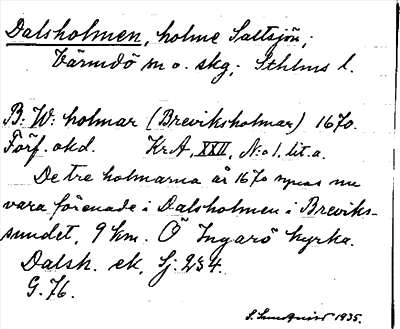 Dalsholmen, holme Saltsjön,
Värmdö m o. skg, Sthlms l.
B: W: holmar (Breviksholmar) 1670.
Förf. okd. KrA, XXII, N:o 1. lit. a.
De tre holmarna år 1670 synas nu
vara förenade i Dalsholmen i Breviks-
sundet, 9 km. Ö Ingarö kyrka.
Dalsh. ek. Sj. 234.
G. 76.
S. Lundqvist 1935.